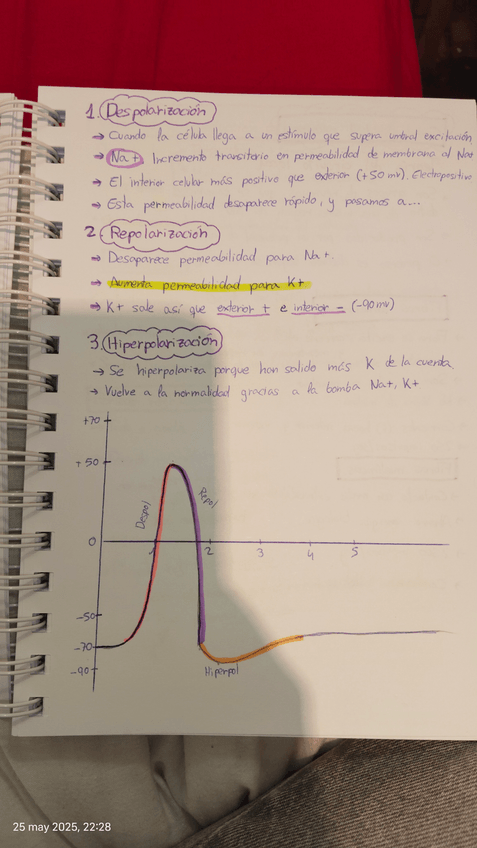 1. Despolarización
→ Cuando la célula llega a un estímulo que supera umbral excitación
→ Na+ Incremento transitorio en permeabilidad de membrana al Na+
→ El interior celular más positivo que exterior (+50 mv). Electropositivo
→ Esta permeabilidad desaparece rápido, y pasamos a...
2. Repolarización
→ Desaparece permeabilidad para Na+.
→ Aumenta permeabilidad para K+
→ K+ sale así que exterior + e interior - (-90mv)
3. Hiperpolarización
→ Se hiperpolariza porque han salido más K de la cuenta.
→ Vuelve a la normalidad gracias a la bomba Na+, K+
+70
+50
Despol
Repol
0
1 2 3 4 5
-50
-70
-90
Hiperpol
25 may 2025, 22:28